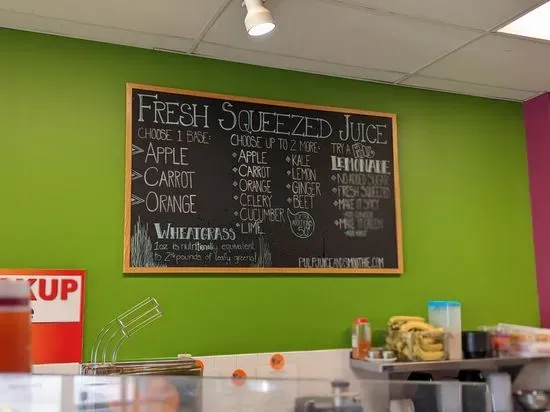 FRESH SQUEEZED JUICE
CHOOSE 1 BASE:
APPLE
CARROT
ORANGE
CHOOSE UP TO 2 MORE:
APPLE
CARROT
ORANGE
CELERY
CUCUMBER
LIME
KALE
LEMON
GINGER
BEET
50¢
TRY A
LEMONADE
NO ADDED SUGAR
FRESH SQUEEZED
MAKE IT SPICY
MAKE IT GREEN
WHEATGRASS
1oz is nutritionally equivalent
to 2½ pounds of leafy greens!
PULPJUICEANDSMOOTHIE.COM
KUP